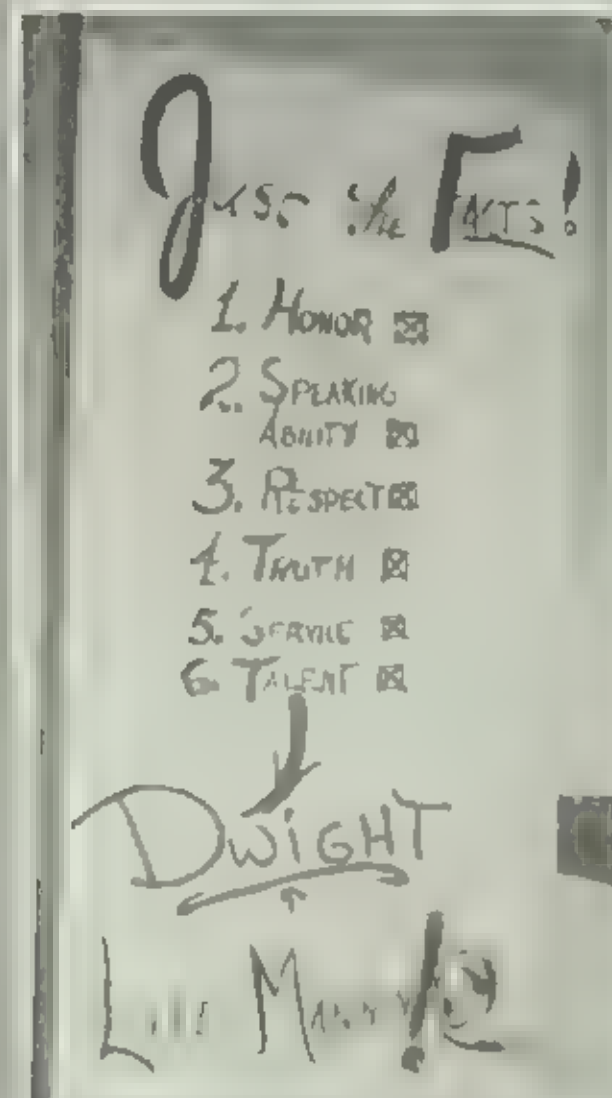 Just the FACTS!
1. HONOR ☒
2. SPEAKING
ABILITY ☒
3. RESPECT ☒
4. TRUTH ☒
5. SERVICE ☒
6. TALENT ☒
DWIGHT